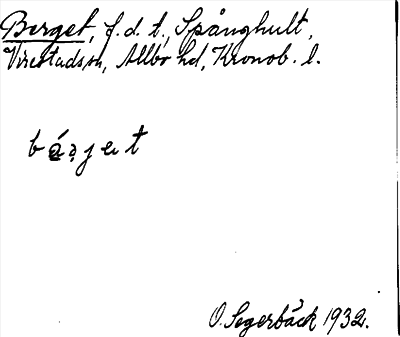 Berget, f. d. t., Spånghult,
Virestads sn, Allbo hd, Kronob. l.
bárjet
O. Segerbäck 1932.